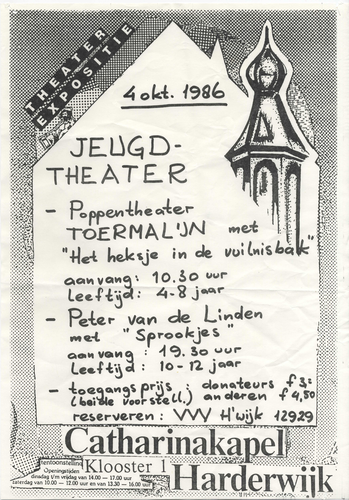 THEATER
EXPOSITIE
4 okt. 1986
JEUGD-
THEATER
- Poppentheater
TOERMALIJN met
"Het heksje in de vuilnisbak"
aanvang: 10.30 uur
leeftijd: 4-8 jaar
- Peter van de Linden
met "Sprookjes"
aanvang: 19.30 uur
leeftijd: 10-12 jaar
- toegangsprijs: donateurs f 3,=
(beide voorstell.) anderen f 4,50
reserveren: VVV H'wijk 12929
Catharinakapel
Klooster 1
Harderwijk
tentoonstelling
Openingstijden
dinsdag t/m vrijdag van 14.00 - 17.00 uur
zaterdag van 10.00 - 12.00 uur en van 13.30 - 16.00